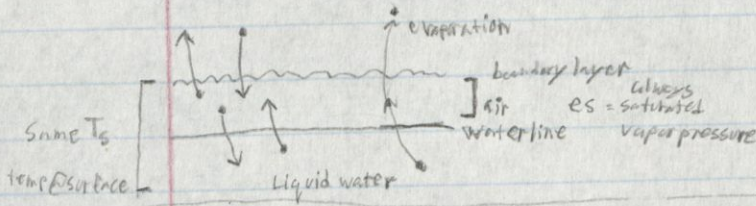 evaporation
boundary layer
always
air es = saturated
waterline vapor pressure
Same Ts
temp@surface
Liquid water